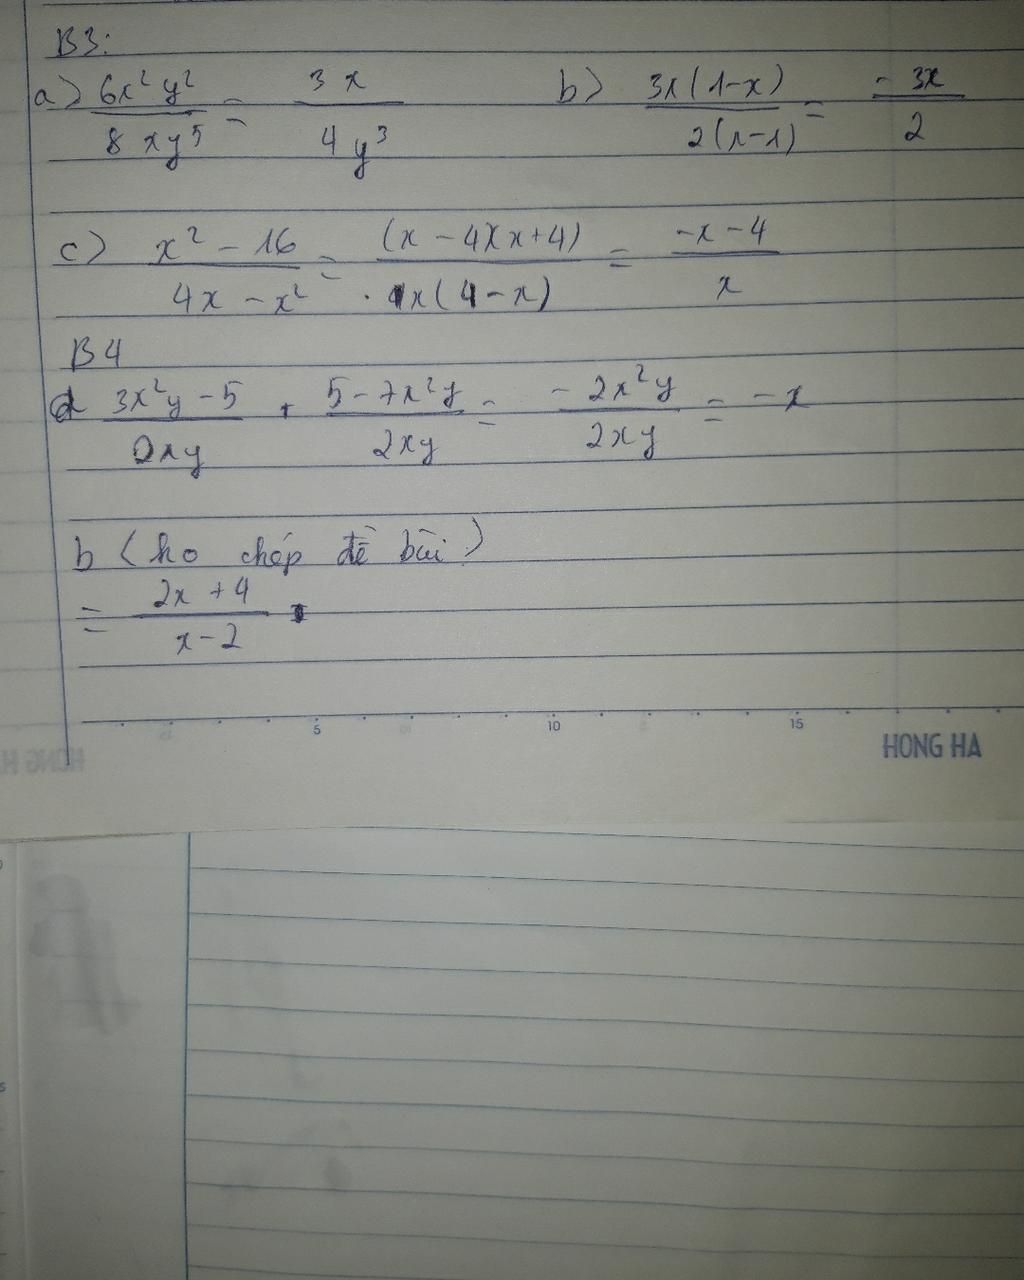 B3:
a) 6x²y² / 8xy⁵ = 3x / 4y³ b) 3x(1-x) / 2(x-1) = -3x / 2
c) x² - 16 / 4x - x² = (x - 4)(x+4) / x(4-x) = -x - 4 / x
B4
a 3x²y - 5 / 2xy + 5 - 7x²y / 2xy = - 2x²y / 2xy = - x
b (ko chép đề bài)
= 2x + 4 / x - 2
5 10 15
HONG HA